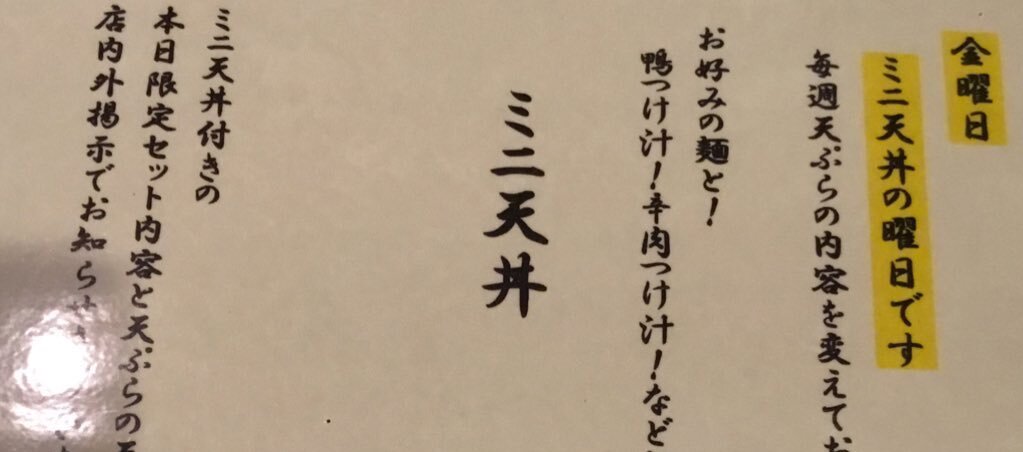 金曜日
ミニ天丼の曜日です
毎週天ぷらの内容を変えてお
お好みの麺と！
鴨つけ汁！辛肉つけ汁！など
ミニ天丼
ミニ天丼付きの
本日限定セット内容と天ぷらの
店内外掲示でお知らせ